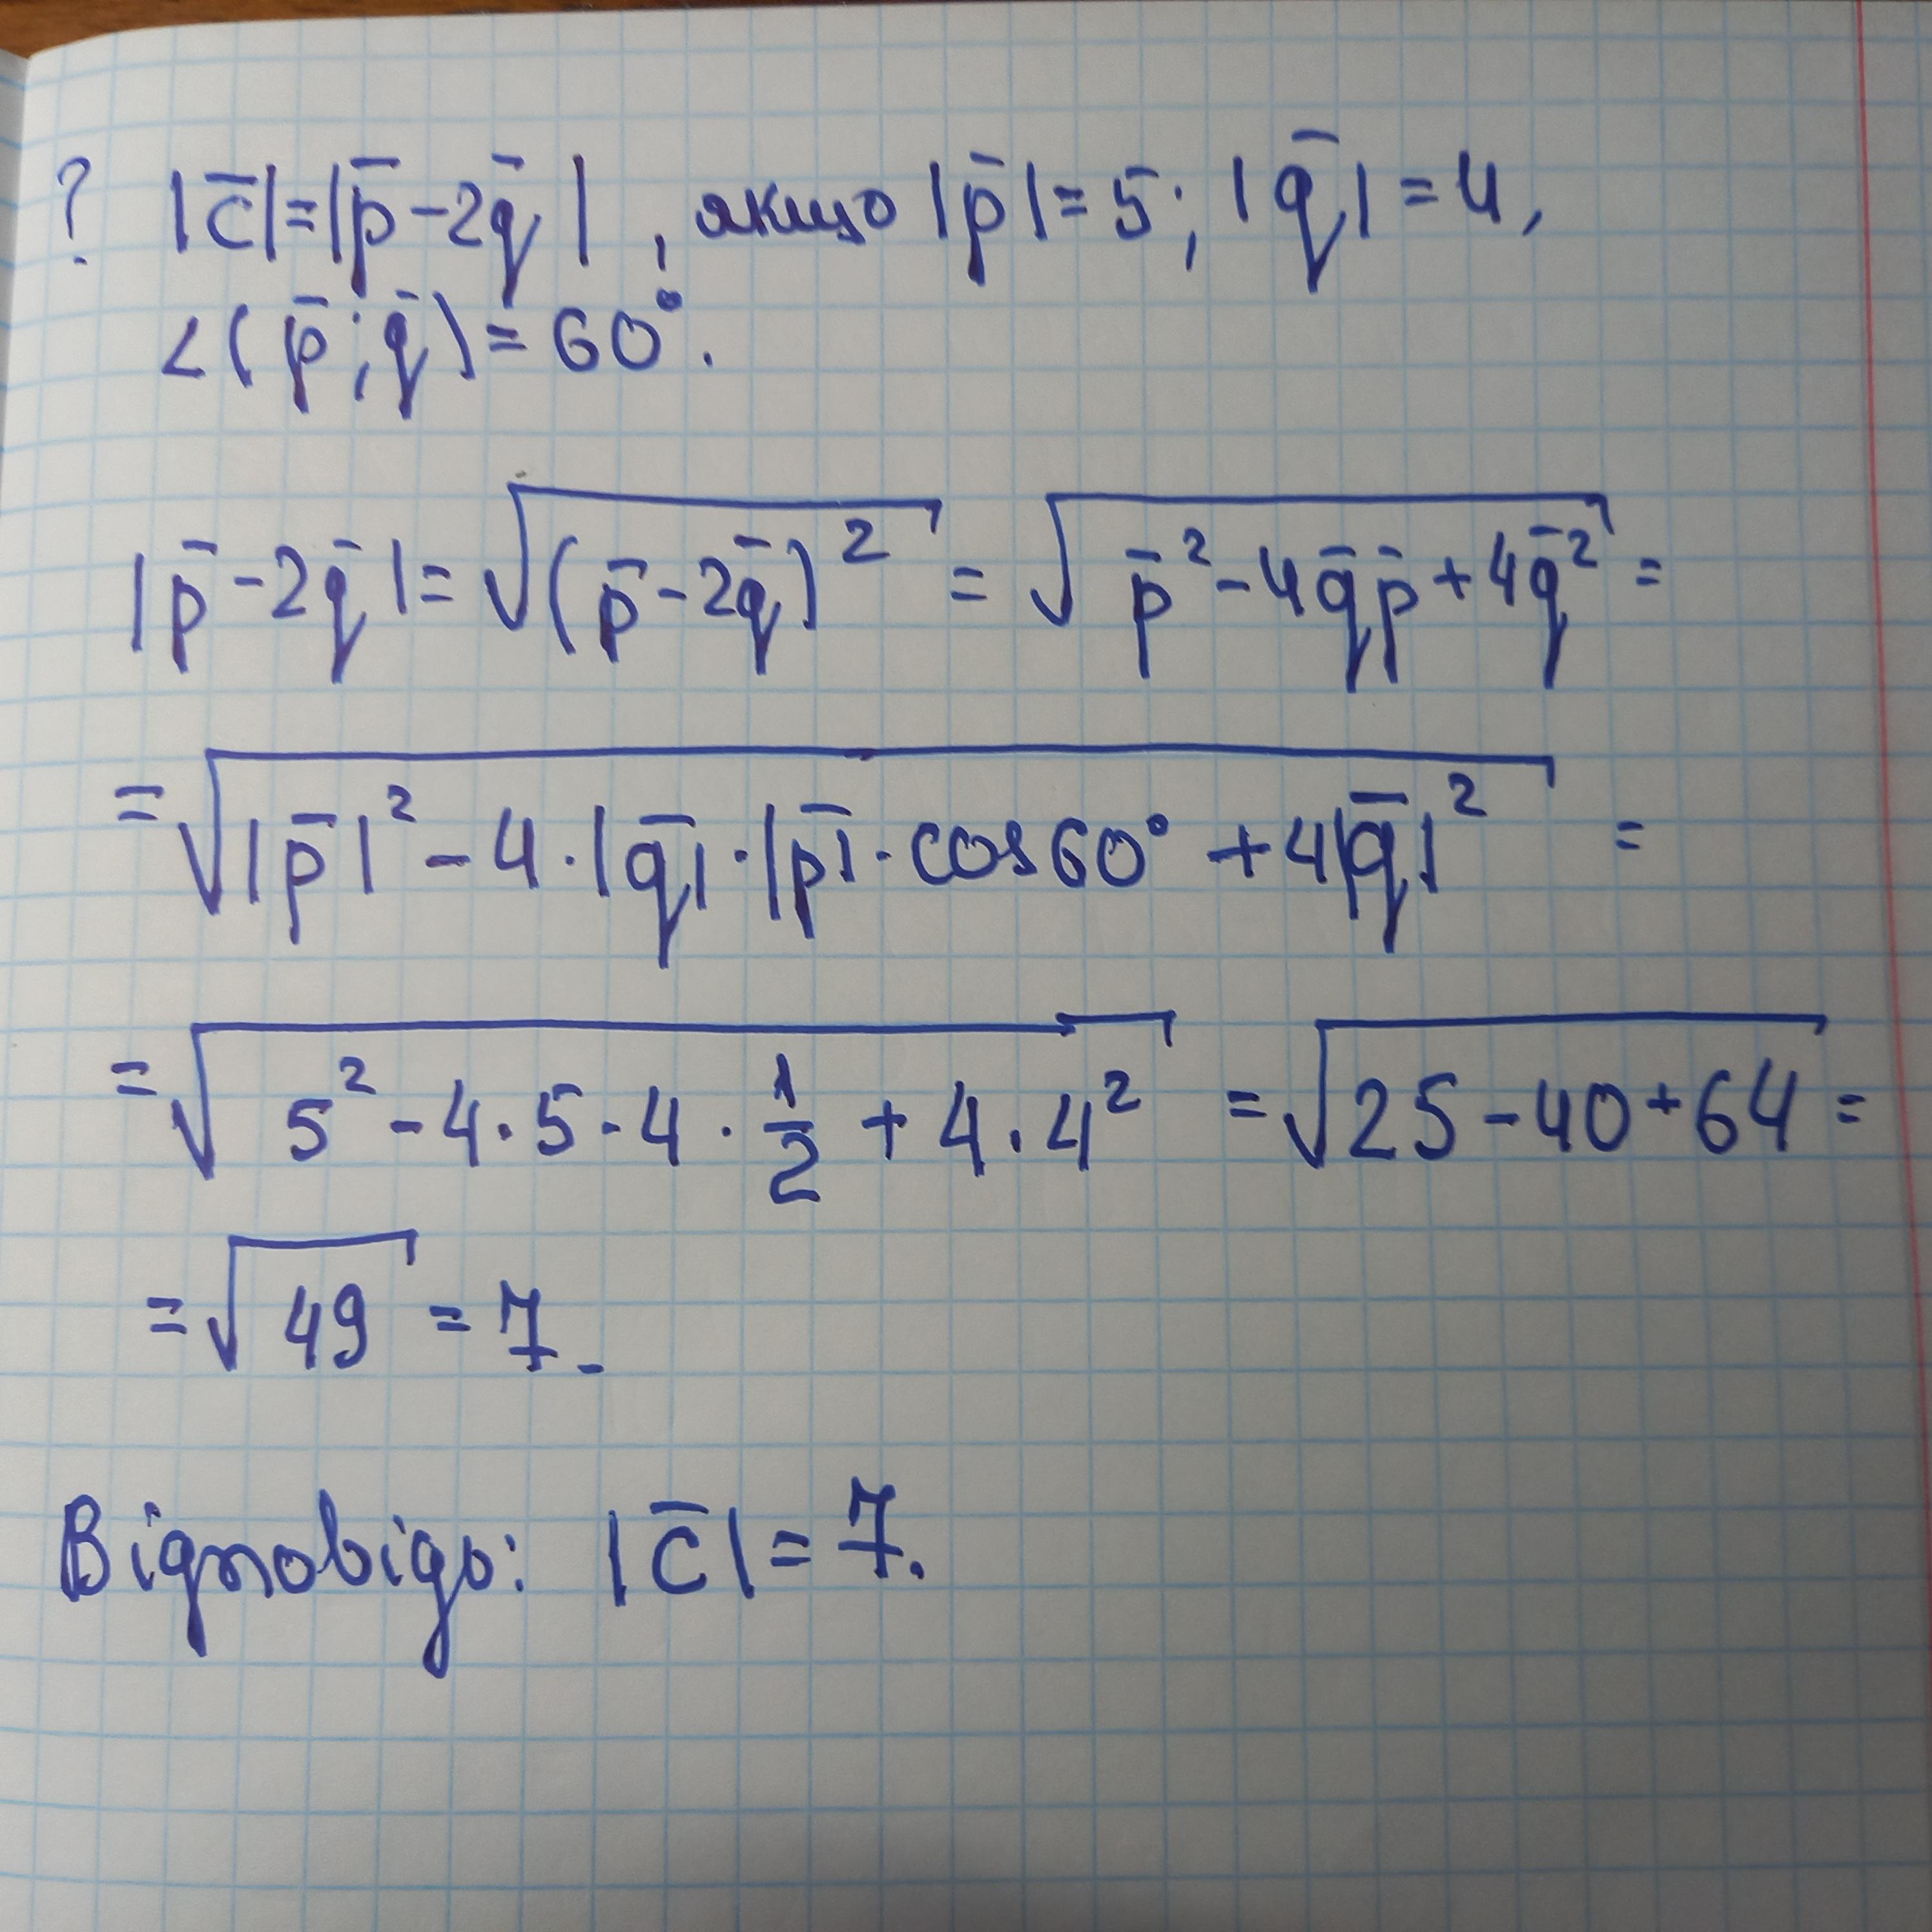 ? |c̅| = |p̅ - 2q̅|, якщо |p̅| = 5; |q̅| = 4,
∠(p̅; q̅) = 60°.
|p̅ - 2q̅| = √((p̅ - 2q̅)²) = √(p̅² - 4q̅p̅ + 4q̅²) =
= √(|p̅|² - 4·|q̅|·|p̅|·cos60° + 4|q̅|²) =
= √(5² - 4·5·4·1/2 + 4·4²) = √(25 - 40 + 64) =
= √49 = 7.
Відповідь: |c̅| = 7.